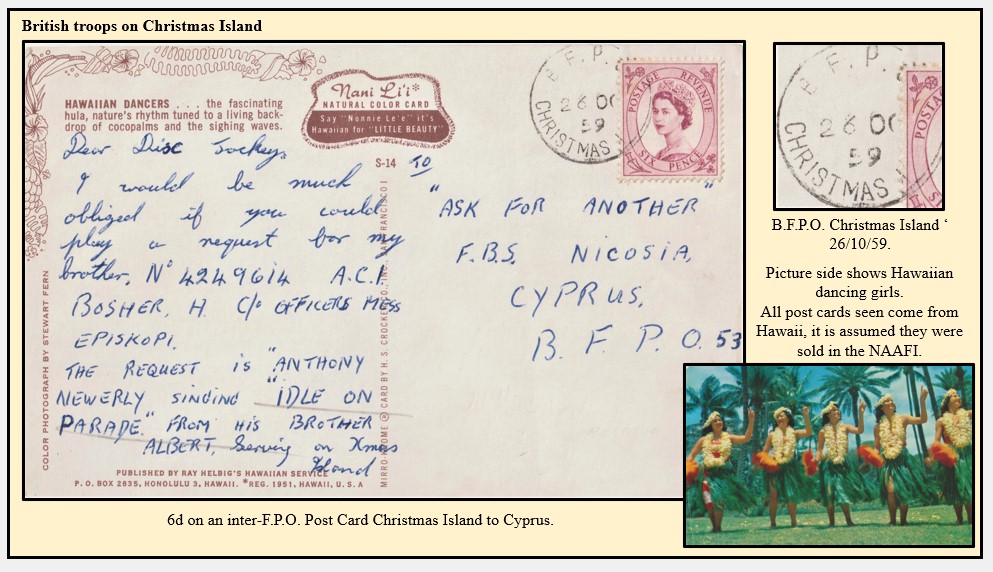 British troops on Christmas Island
HAWAIIAN DANCERS . . . the fascinating
hula, nature's rhythm tuned to a living back-
drop of cocopalms and the sighing waves.
Nani Li'i*
NATURAL COLOR CARD
Say "Nonnie Le'e" it's
Hawaiian for "LITTLE BEAUTY"
S-14
B. F. P.
26 OC
59
CHRISTMAS I
POSTAGE REVENUE
SIX PENCE
Dear Disc Jockey,
I would be much
obliged if you could
play a request for my
brother, No 4249614 A.C.1.
BOSHER, H. C/o OFFICERS MESS
EPISKOPI.
THE REQUEST is "ANTHONY
NEWERLY SINGING "IDLE ON
PARADE." FROM HIS BROTHER
ALBERT, Serving on Xmas
Island
TO
"ASK FOR ANOTHER"
F.B.S. NICOSIA,
CYPRUS,
B. F. P. O. 53
COLOR PHOTOGRAPH BY STEWART FERN
MIRRO-KROME ® CARD BY H. S. CROCKER CO., INC., SAN FRANCISCO 1
PUBLISHED BY RAY HELBIG'S HAWAIIAN SERVICE
P. O. BOX 2835, HONOLULU 3, HAWAII. *REG. 1951, HAWAII, U. S. A
6d on an inter-F.P.O. Post Card Christmas Island to Cyprus.
B F. P.
26 OC
59
CHRISTMAS I
POSTA
B.F.P.O. Christmas Island ‘
26/10/59.
Picture side shows Hawaiian
dancing girls.
All post cards seen come from
Hawaii, it is assumed they were
sold in the NAAFI.